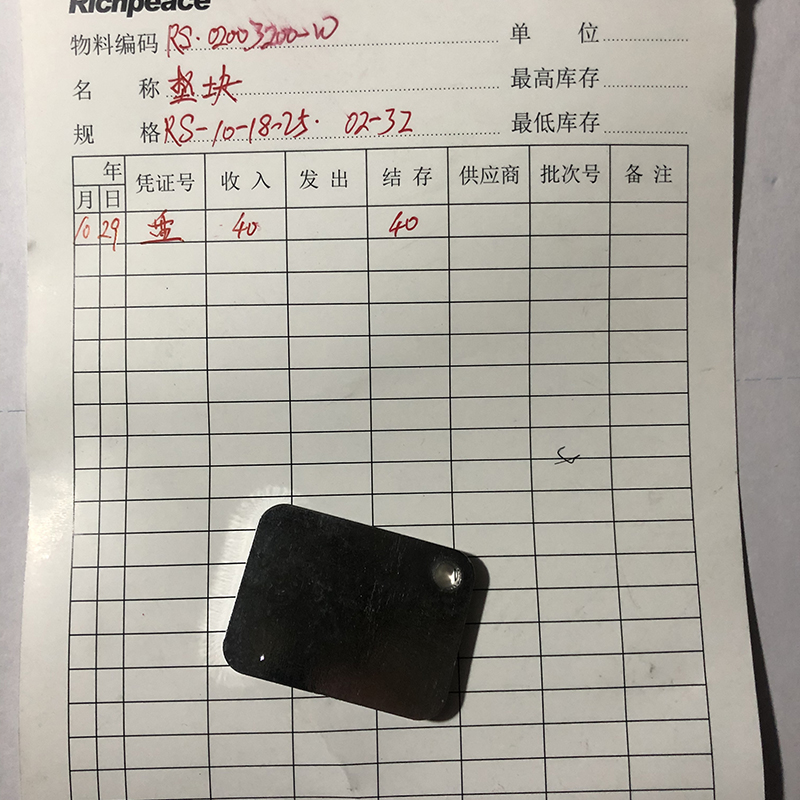 Richpeace
物料编码 RS·02003200-W 单 位
名 称 垫块 最高库存
规 格 RS-10-18-25· 02-32 最低库存
年
月 日 凭证号 收 入 发 出 结 存 供应商 批次号 备 注
10 29 40 40